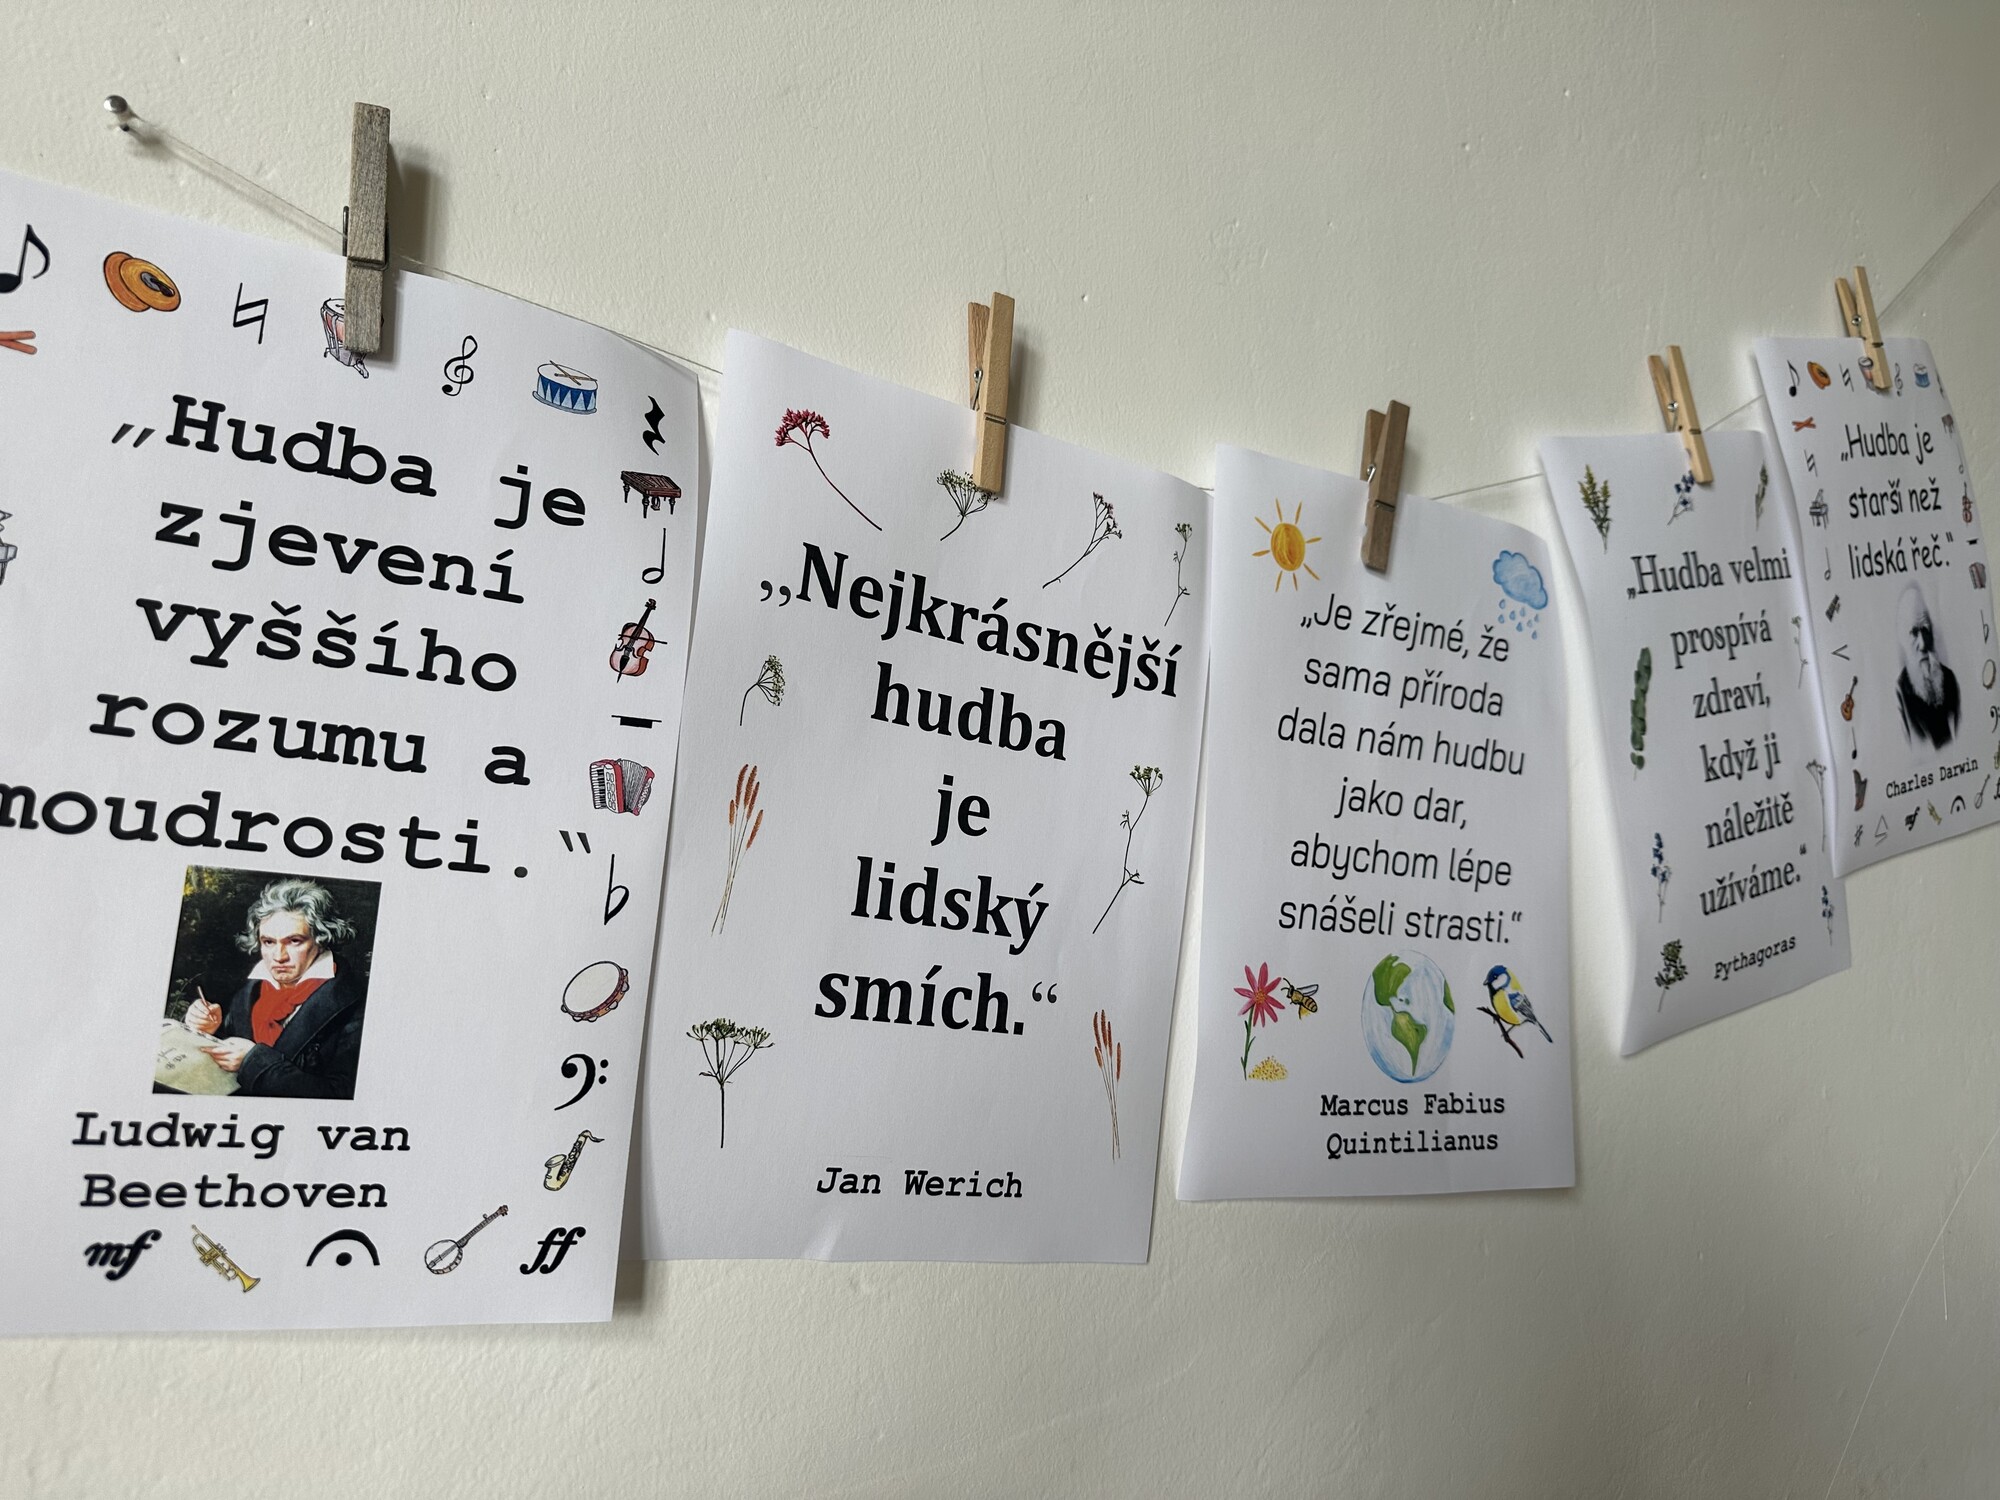 „Hudba je
zjevení
vyššího
rozumu a
moudrosti.“
Ludwig van
Beethoven
mf
ff
„Nejkrásnější
hudba
je
lidský
smích.“
Jan Werich
„Je zřejmé, že
sama příroda
dala nám hudbu
jako dar,
abychom lépe
snášeli strasti.“
Marcus Fabius
Quintilianus
„Hudba velmi
prospívá
zdraví,
když ji
náležitě
užíváme.“
Pythagoras
„Hudba je
starší než
lidská řeč."
Charles Darwin
mf